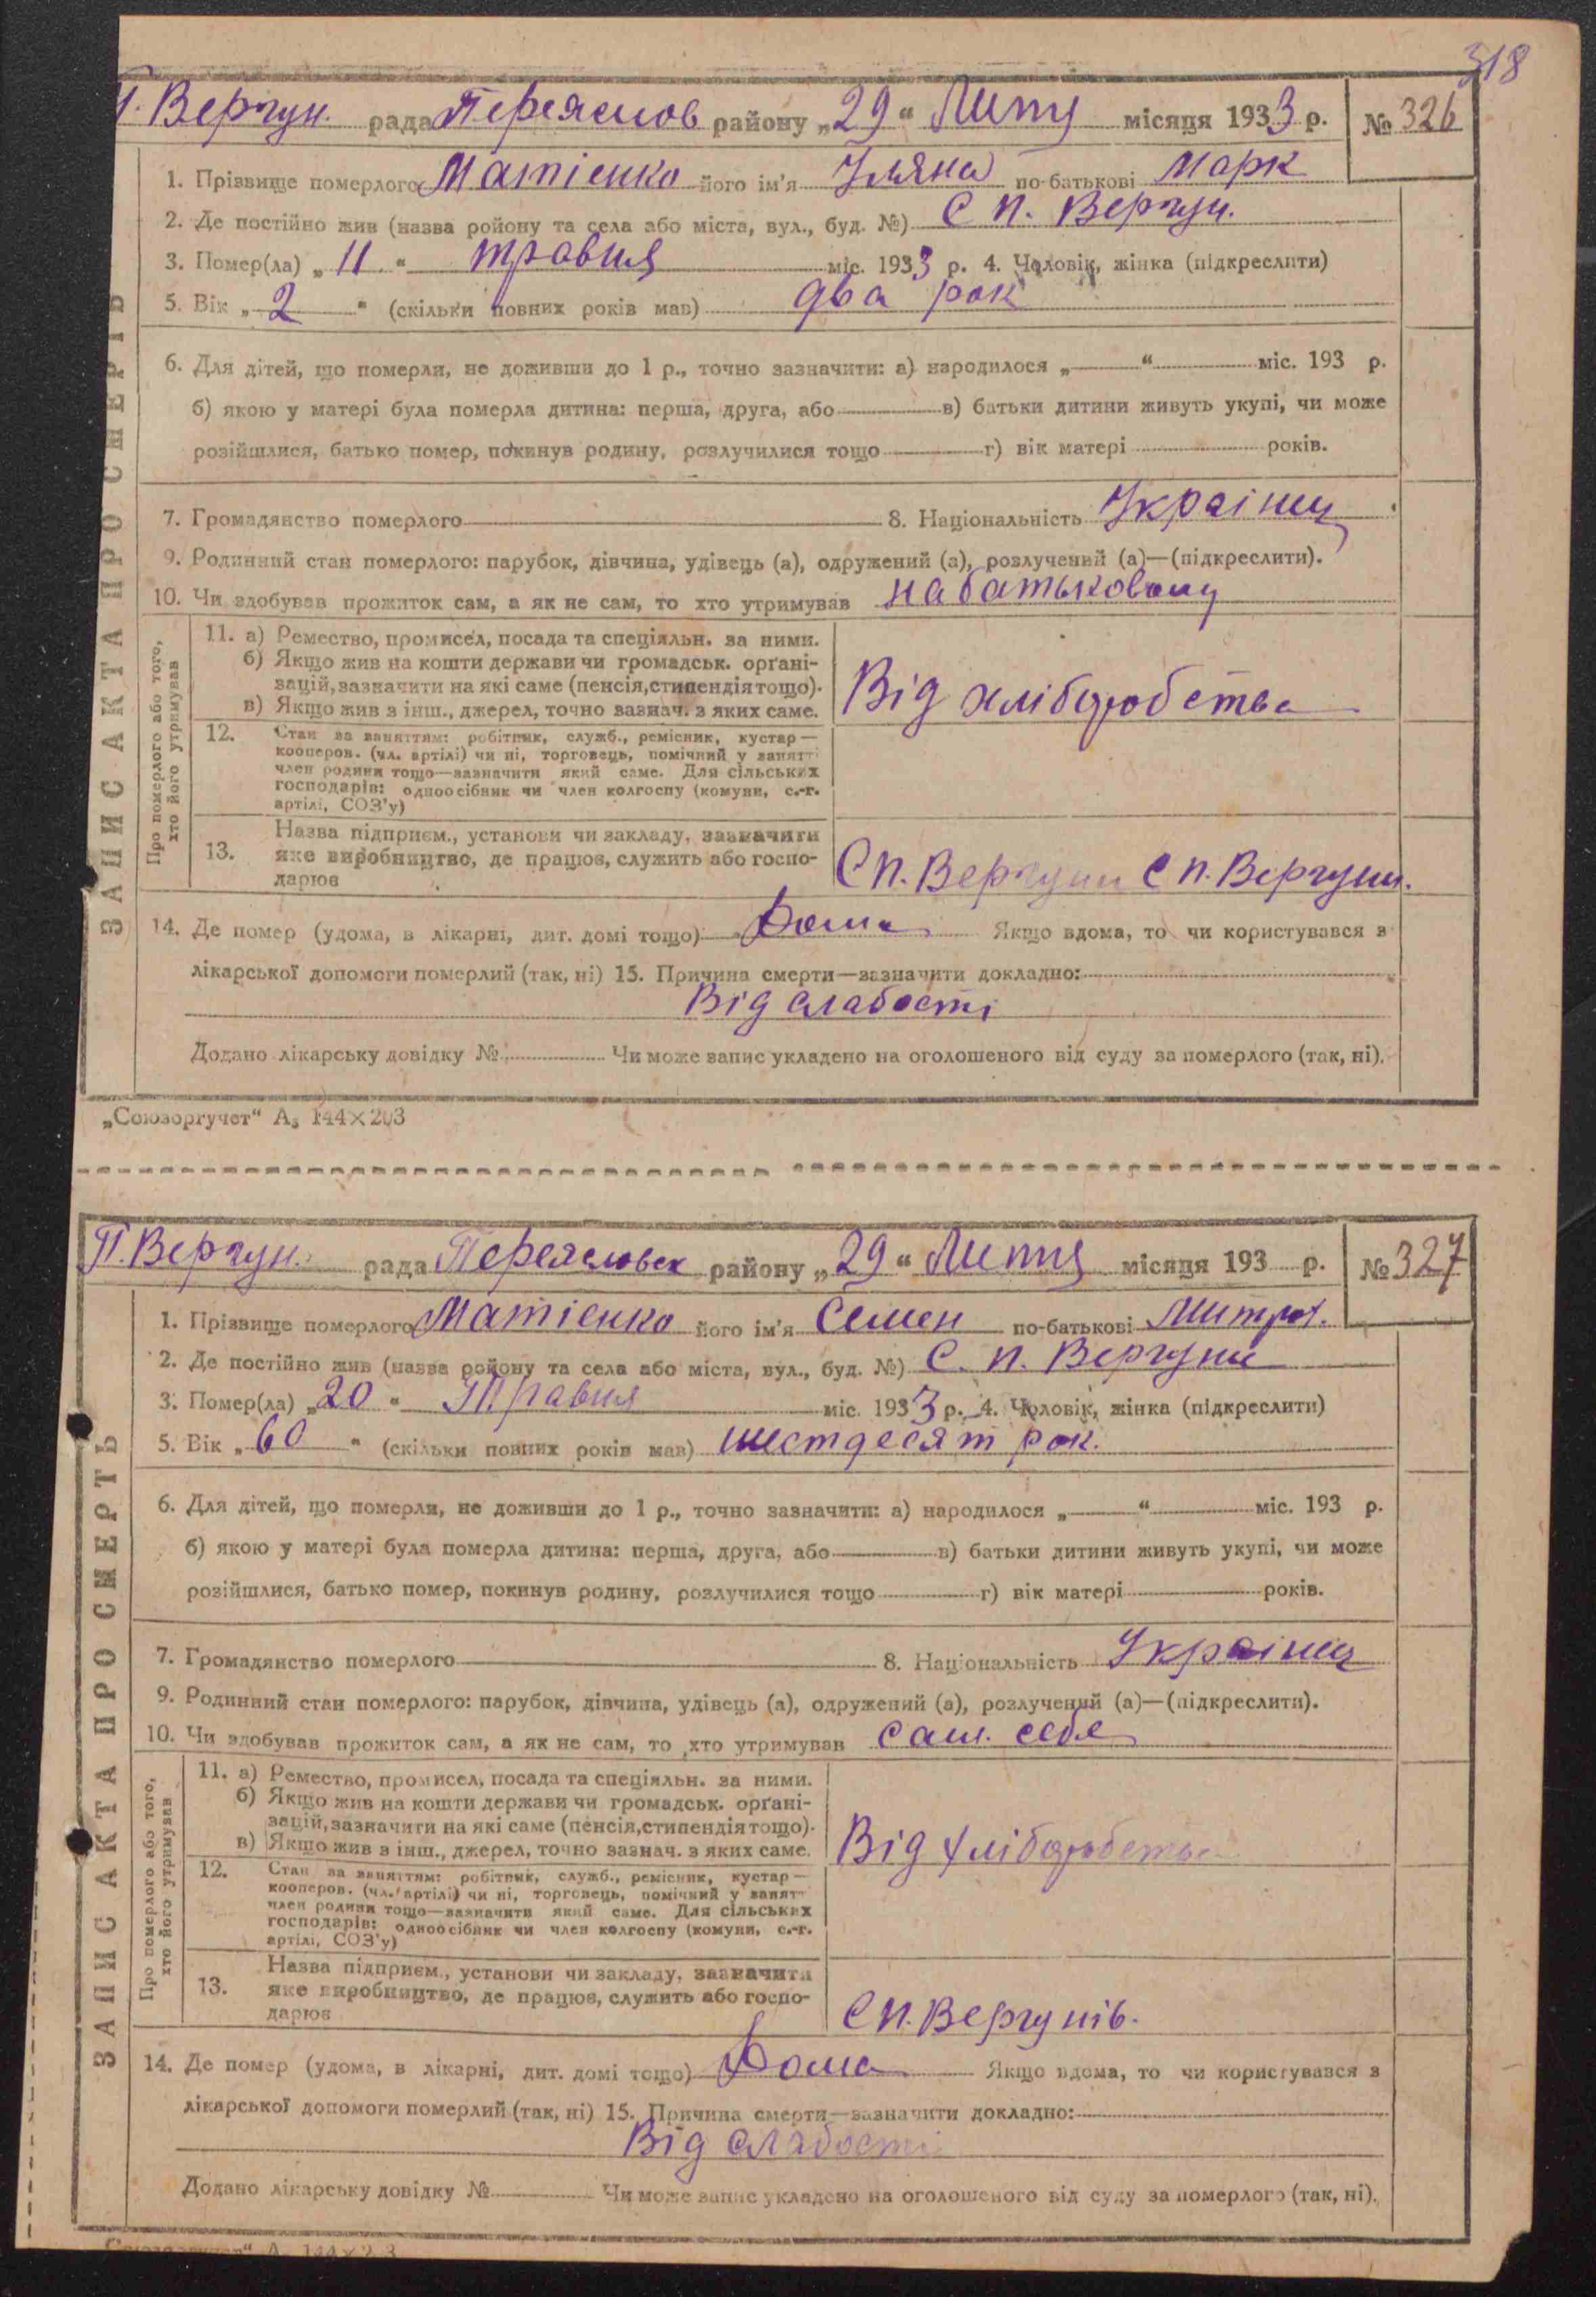 318
П. Вергун. рада Переяслов району „29“ Липця місяця 1933 р. № 326
1. Прізвище померлого Матієнко його ім'я Уляна по-батькові Марк
2. Де постійно жив (назва ройону та села або міста, вул., буд. №) С П. Вергун.
3. Помер(ла) „11“ травня міс. 1933 р. 4. Чоловік, жінка (підкреслити)
5. Вік „2“ (скільки повних років мав) два рок
6. Для дітей, що померли, не доживши до 1 р., точно зазначити: а) народилося „ “ міс. 193 р.
б) якою у матері була померла дитина: перша, друга, або в) батьки дитини живуть укупі, чи може
розійшлися, батько помер, покинув родину, розлучилися тощо г) вік матері років.
7. Громадянство померлого 8. Національність Українц
9. Родинний стан померлого: парубок, дівчина, удівець (а), одружений (а), розлучений (а)—(підкреслити).
10. Чи здобував прожиток сам, а як не сам, то хто утримував на батьковому
ЗАПИС АКТА ПРО СМЕРТЬ
Про померлого або того, хто його утримував
11. а) Ремество, промисел, посада та спеціяльн. за ними.
б) Якщо жив на кошти держави чи громадськ. орґані-
зацій, зазначити на які саме (пенсія, стипендія тощо).
в) Якщо жив з інш., джерел, точно зазнач. з яких саме.
Від хліборобства
12. Стан за заняттям: робітник, служб., ремісник, кустар—
кооперов. (чл. артілі) чи ні, торговець, помічний у занятті
член родини тощо—зазначити який саме. Для сільських
господарів: одноосібник чи член колгоспу (комуни, с.-г.
артілі, СОЗ'у)
13. Назва підприєм., установи чи закладу, зазначити
яке виробництво, де працюв, служить або госпо-
дарюв
С П. Вергуни С П. Вергуни.
14. Де помер (удома, в лікарні, дит. домі тощо) Дома Якщо вдома, то чи користувався з
лікарської допомоги померлий (так, ні) 15. Причина смерти—зазначити докладно:
Від слабості
Додано лікарську довідку № Чи може запис укладено на оголошеного від суду за померлого (так, ні).
„Союзоргучет“ А₅ 144×203
П. Вергун. рада Переяславск району „29“ Липця місяця 193 р. № 327
1. Прізвище померлого Матієнко його ім'я Семен по-батькові Митроф.
2. Де постійно жив (назва ройону та села або міста, вул., буд. №) С. П. Вергуни
3. Помер(ла) „20“ Травня міс. 1933 р. 4. Чоловік, жінка (підкреслити)
5. Вік „60“ (скільки повних років мав) шестдесят рок.
6. Для дітей, що померли, не доживши до 1 р., точно зазначити: а) народилося „ “ міс. 193 р.
б) якою у матері була померла дитина: перша, друга, або в) батьки дитини живуть укупі, чи може
розійшлися, батько помер, покинув родину, розлучилися тощо г) вік матері років.
7. Громадянство померлого 8. Національність Українц
9. Родинний стан померлого: парубок, дівчина, удівець (а), одружений (а), розлучений (а)—(підкреслити).
10. Чи здобував прожиток сам, а як не сам, то хто утримував сам. себе
ЗАПИС АКТА ПРО СМЕРТЬ
Про померлого або того, хто його утримував
11. а) Ремество, промисел, посада та спеціяльн. за ними.
б) Якщо жив на кошти держави чи громадськ. орґані-
зацій, зазначити на які саме (пенсія, стипендія тощо).
в) Якщо жив з інш., джерел, точно зазнач. з яких саме.
Від хліборобства
12. Стан за заняттям: робітник, служб., ремісник, кустар—
кооперов. (чл. артілі) чи ні, торговець, помічний у занятт
член родини тощо—зазначити який саме. Для сільських
господарів: одноосібник чи член колгоспу (комуни, с.-г.
артілі, СОЗ'у)
13. Назва підприєм., установи чи закладу, зазначити
яке виробництво, де працюв, служить або госпо-
дарюв
С П. Вергунів.
14. Де помер (удома, в лікарні, дит. домі тощо) Дома Якщо вдома, то чи користувався з
лікарської допомоги померлий (так, ні) 15. Причина смерти—зазначити докладно:
Від слабості
Додано лікарську довідку № Чи може запис укладено на оголошеного від суду за померлого (так, ні).